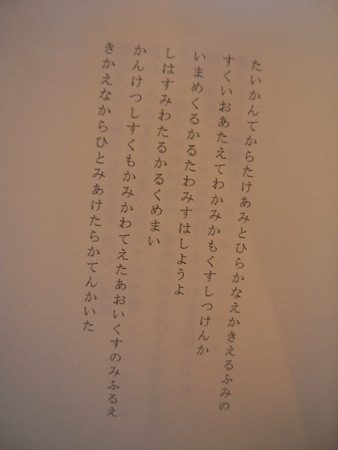 たいかんてからたけあみとひらかなえかきえるふみの
すくいおあたえてわかみかもくすしつけんか
いまめくるかるたわみすはしようよ
しはすみわたるかるくめまい
かんけつしすくもかみかわてえたあおいくすのみふるえ
きかえなからひとみあけたらかてんかいた